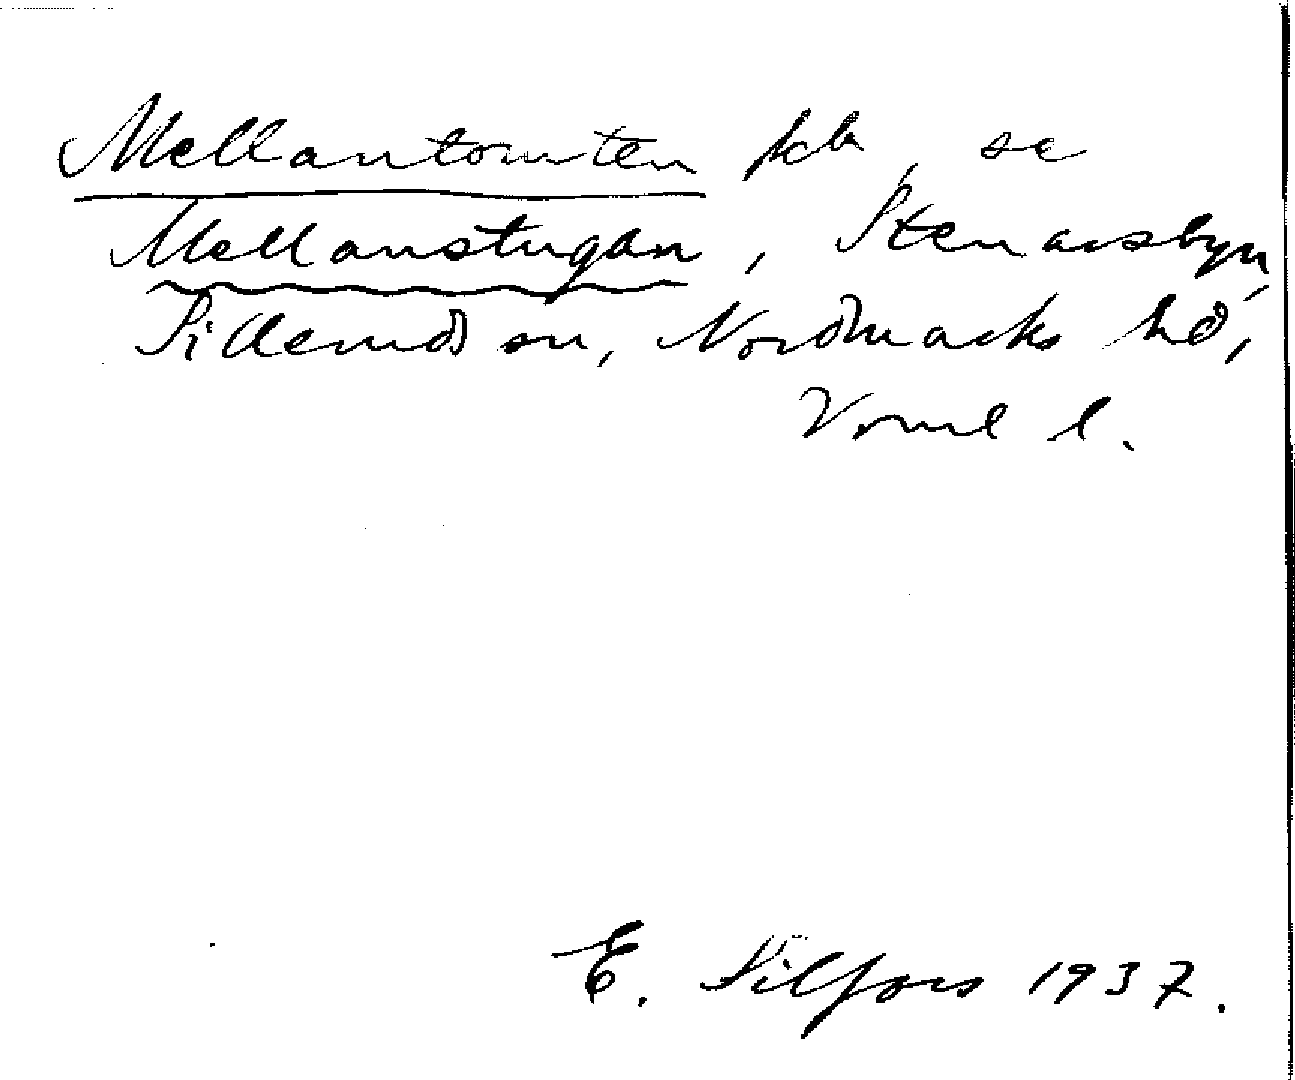 Mellantomten fch, se
Mellanstugan, Stenarsbyn,
Sillerud sn, Nordmarks hd,
Verml l.
E. Silfors 1937.